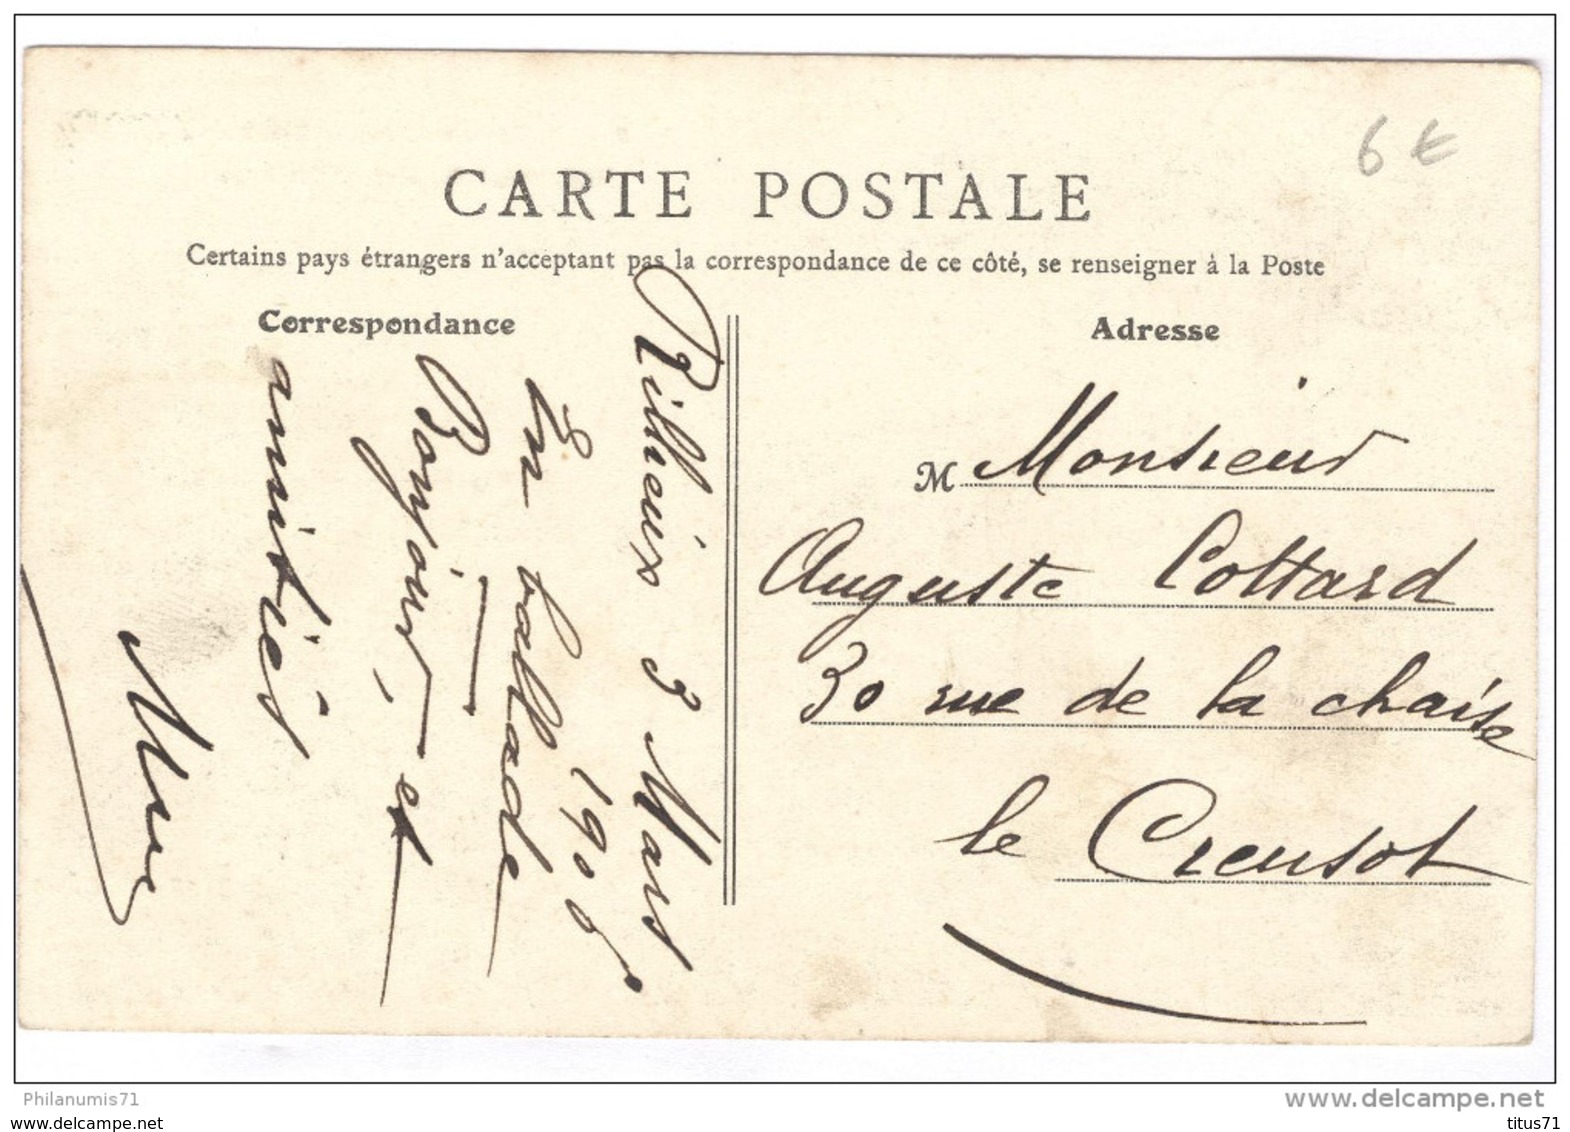 6 €
CARTE POSTALE
Certains pays étrangers n'acceptant pas la correspondance de ce côté, se renseigner à la Poste
Correspondance
Rillieux 3 Mars
190
En ballade
Bonjour, et
amitiés
Adresse
M Monsieur
Auguste Cottard
30 rue de la chaise
le Creusot
Philanumis71
www.delcampe.net
My own collection
titus71